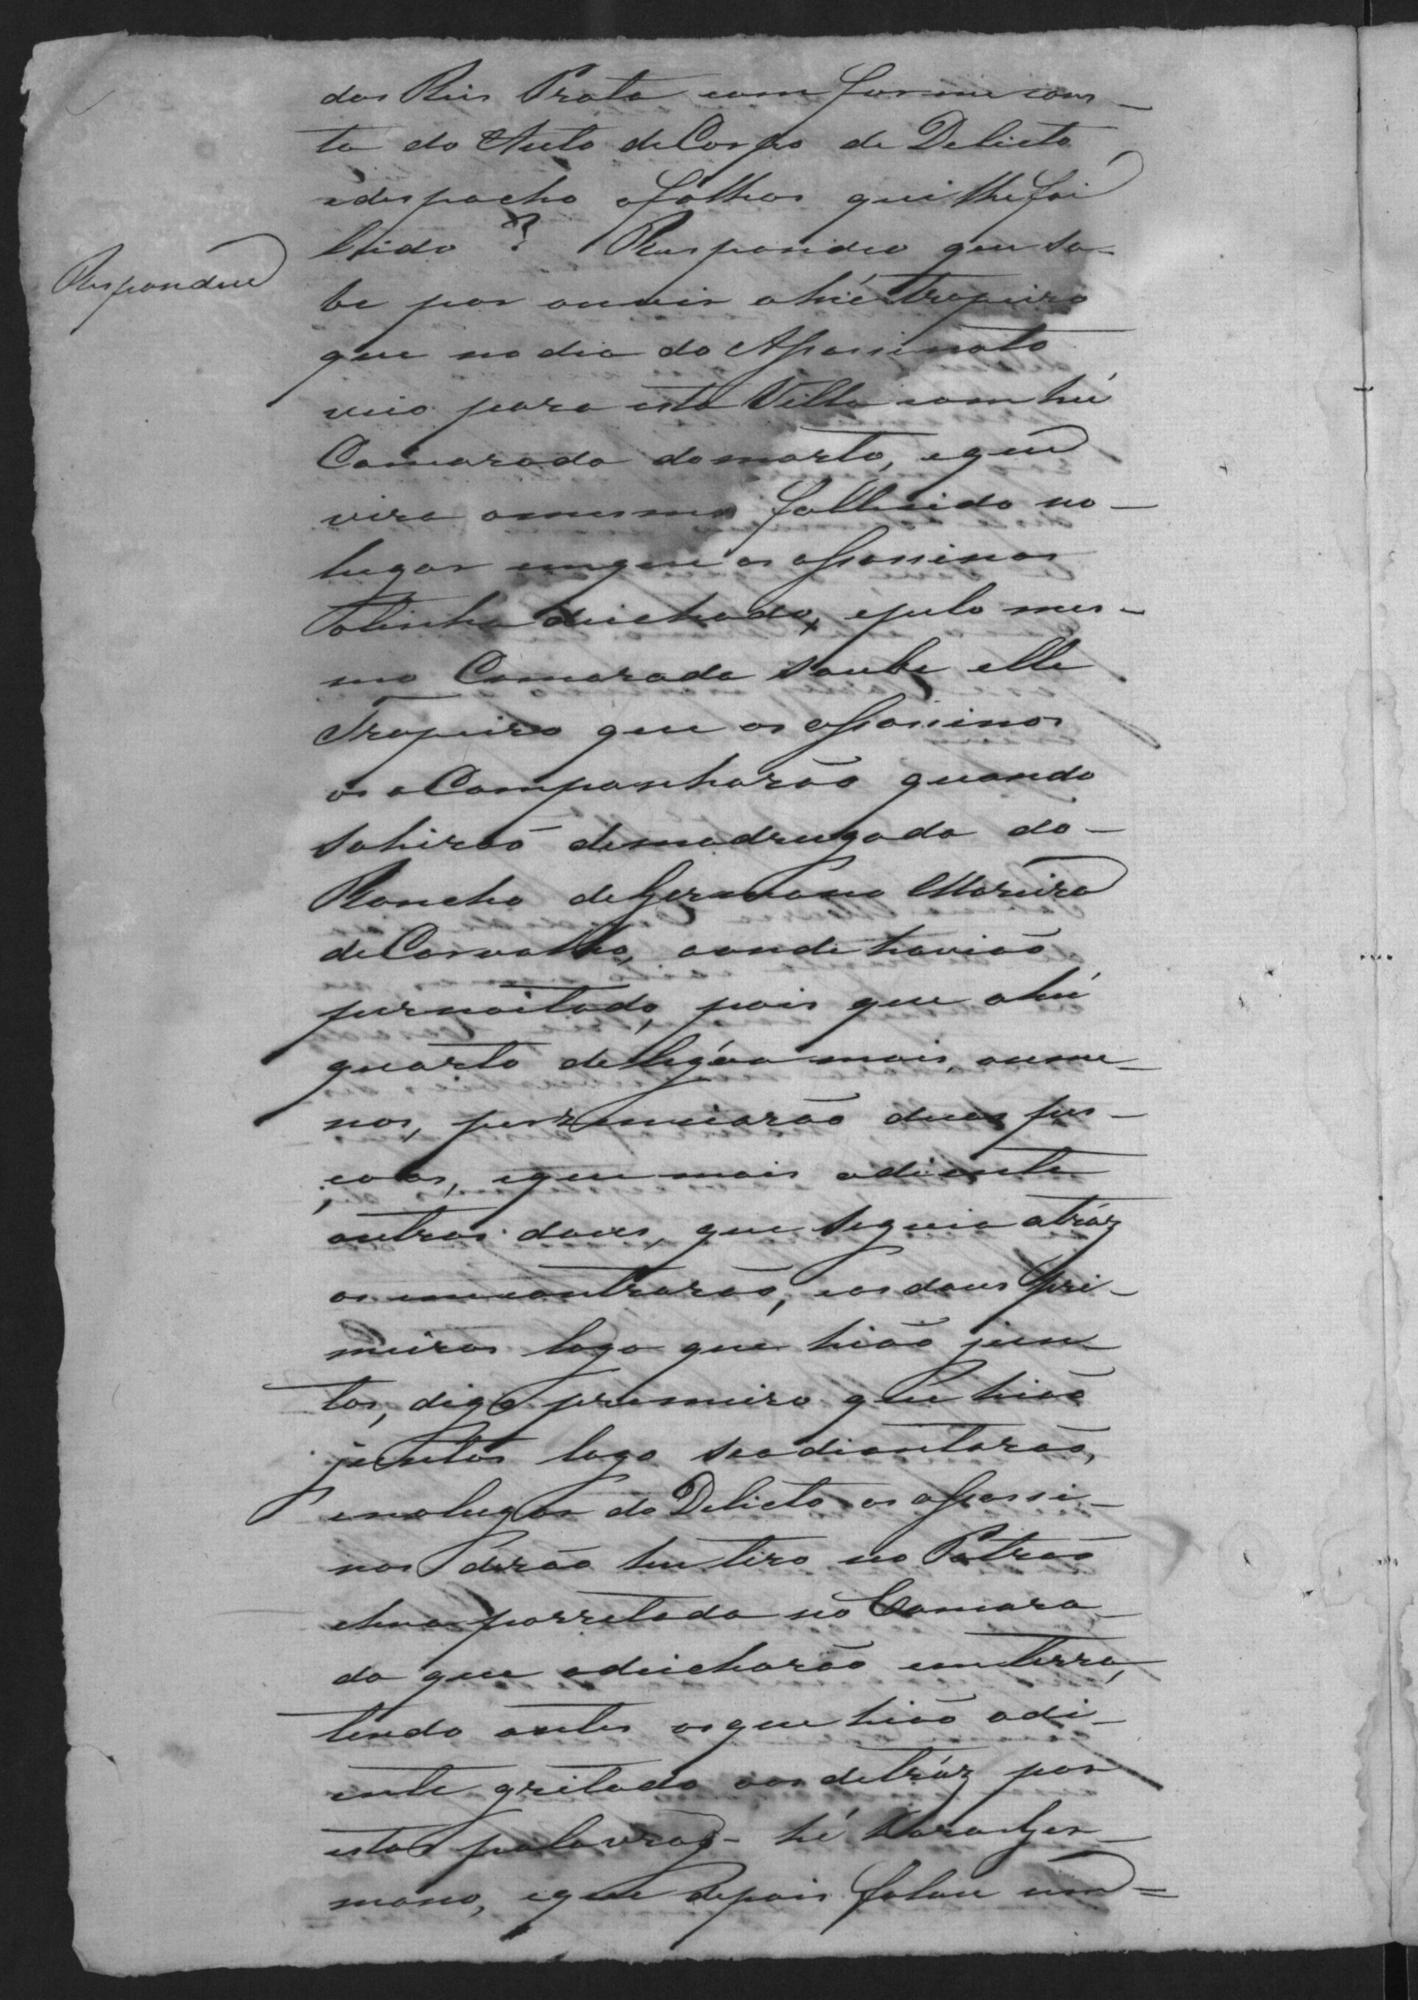 dos Reis Prata com forme cons-
ta do Auto de Corpo de Delicto
e despacho afolhas que lhe foi
lido? Respondeo que sa-
Respondeu
be por ouvir a hú tropeiro
que no dia do Assassinato
veio para esta Villa com hú
Camarada do morto, e que
vira o mesmo fallecido no-
lugar em que os assassinos
o tinha deichado, e pelo mes-
mo Camarada soube elle
Tropeiro que os assassinos
os a Companharão quando
sahirão de madrugada do-
Rancho de Germano Moreira
de Carvalho, aonde havião
pernoitado, pois que a hú
quarto de legoa mais, ou me-
nos, prezenciarão duas pes-
soas, e que mais adiante
outros dous, que seguia atráz
os encontrarão, e os dous pri-
meiros logo que hião jun-
tos, digo primeiro que hião
juntos logo se adiantarão,
e no lugar do Delicto os assassi-
nos derão hu tiro no Patrão
e hua porretada no Camara-
da que o deicharão em terra,
tendo antes os que hião adi-
ante gritado aos de tráz por
estas palavras - hé hora Ger-
mano, e que depois falou um=